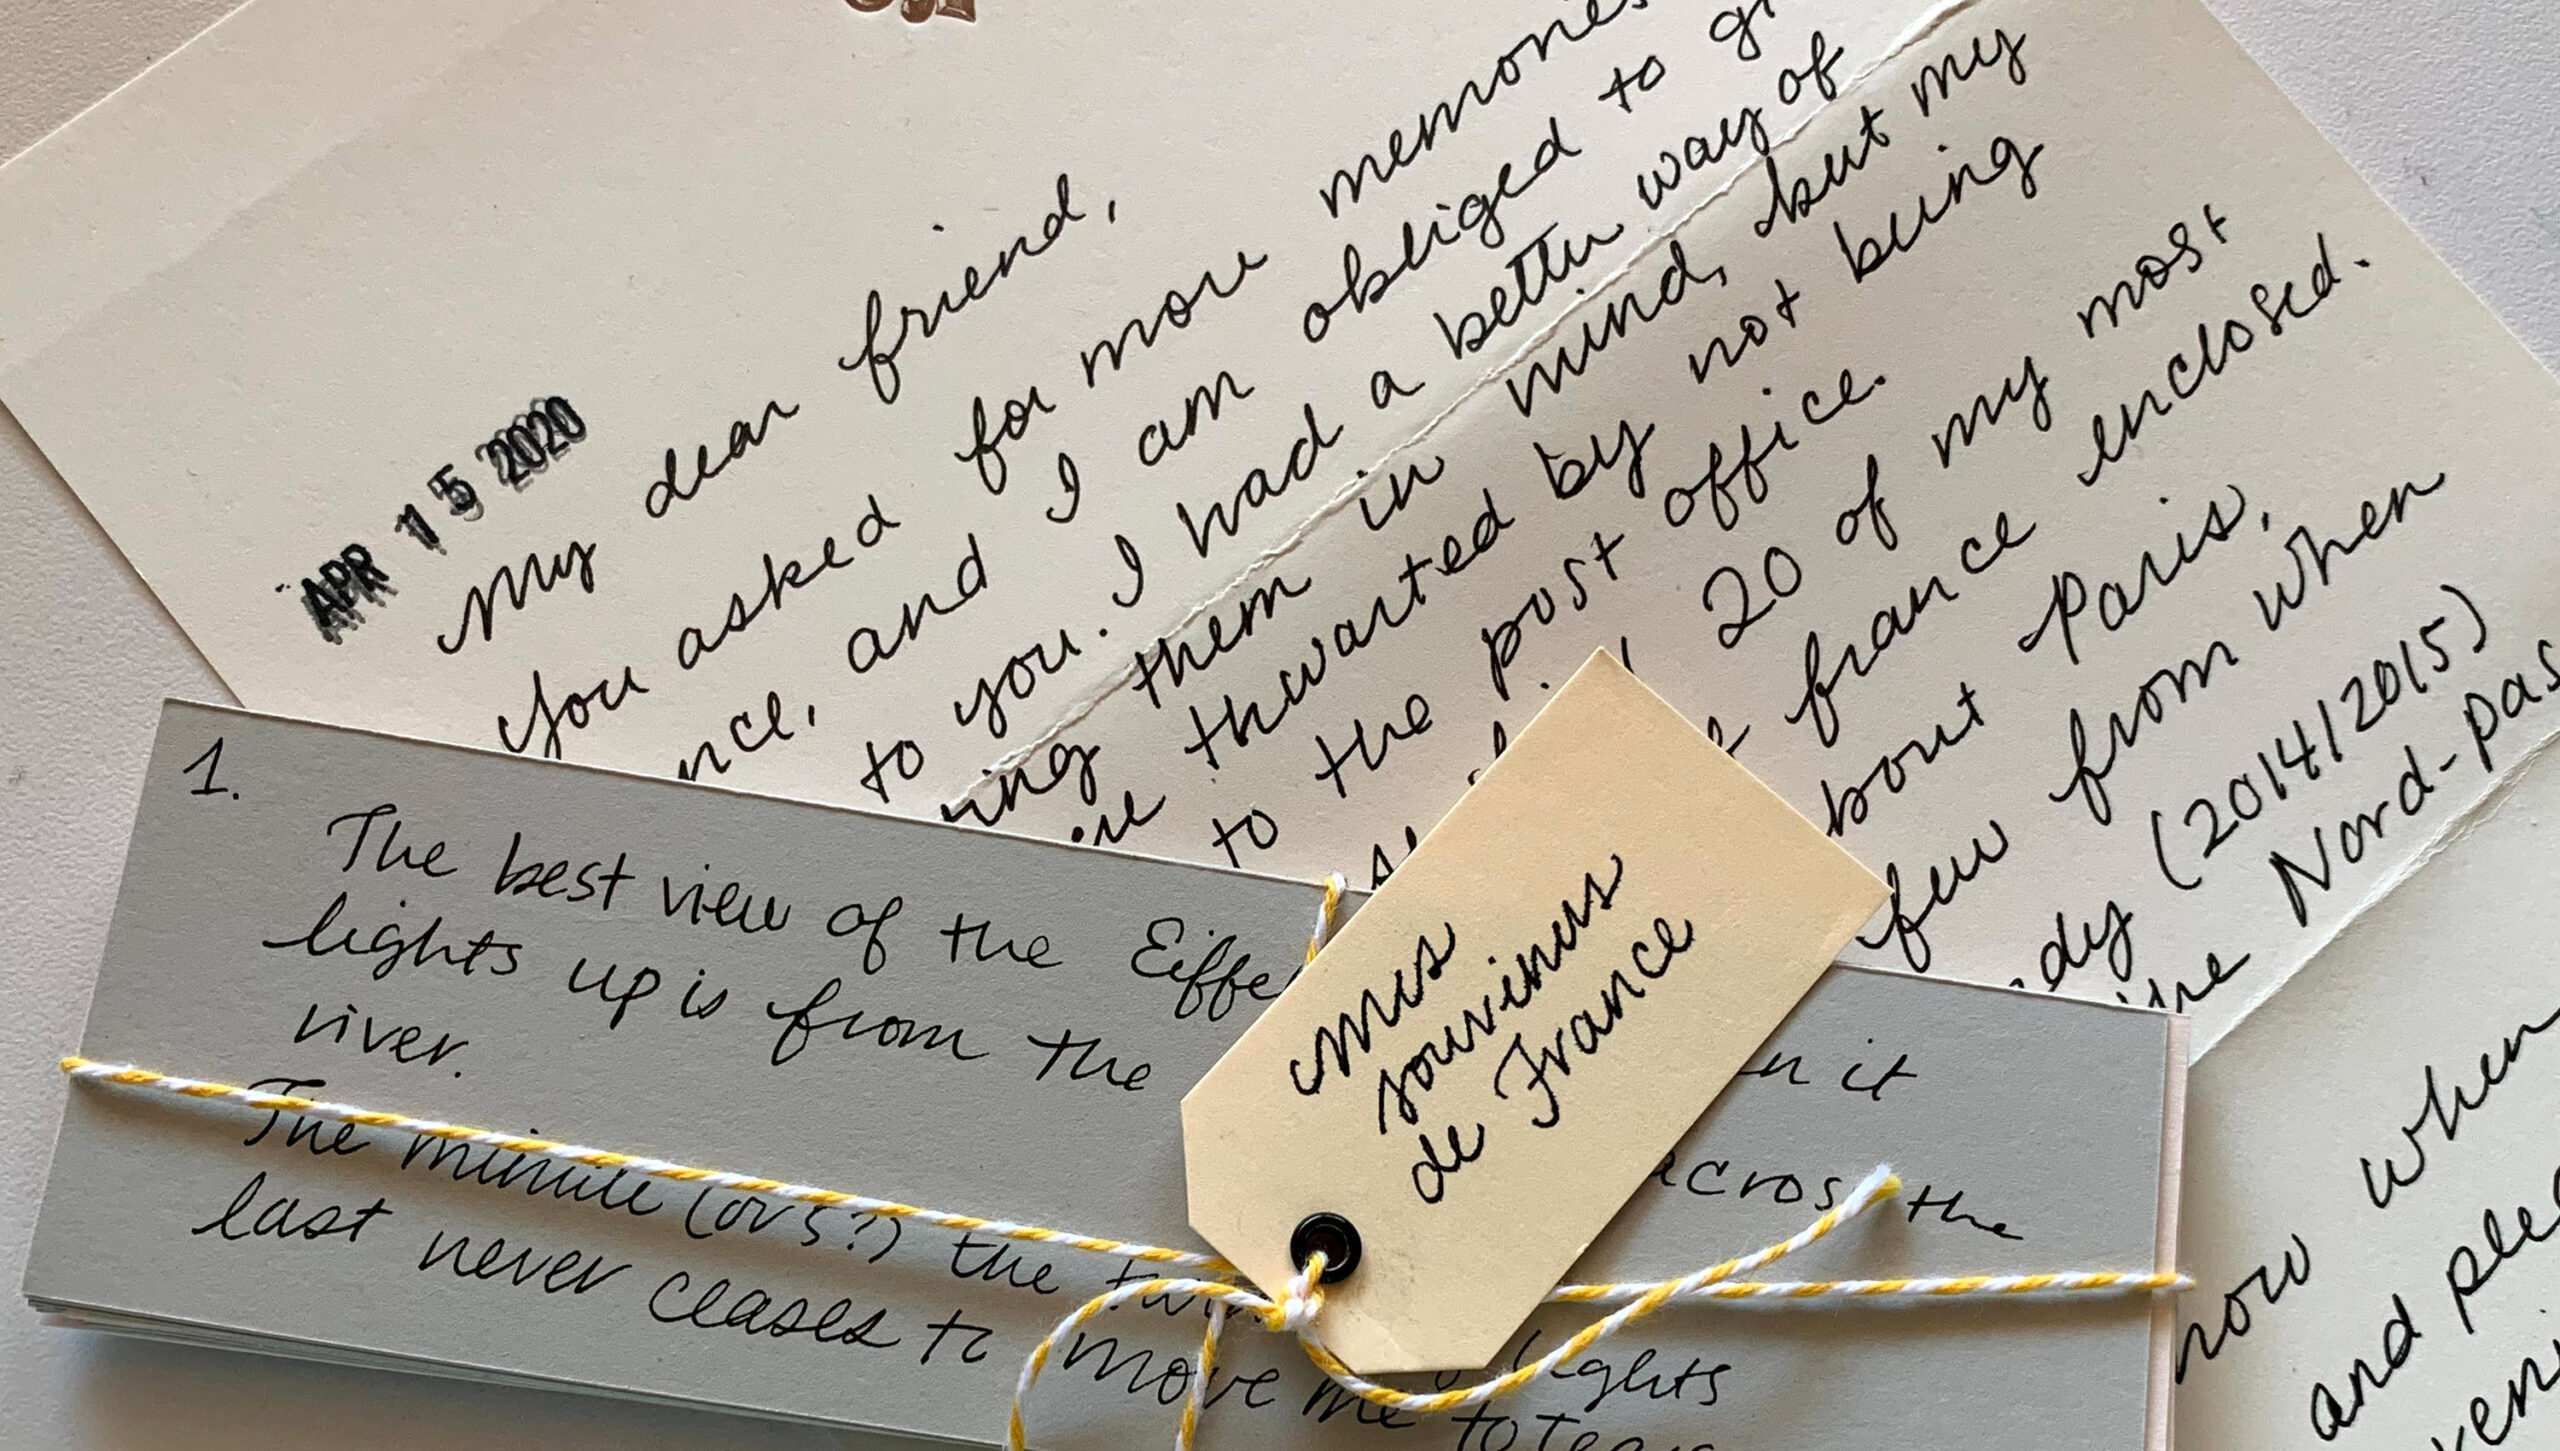 APR 15 2020
My dear friend,
You asked for more memories
nce, and I am obliged to
to you. I had a better way of
ing them in mind, but my
thwarted by not being
to the post office.
20 of my most
france enclosed.
bout Paris,
few from when
dy (2014/2015)
the Nord-Pas
when
now
and
1.
The best view of the Eiffe n it
lights up is from the across the
river.
The minute (or 5?) the lights
last never ceases to move me to tears
mes
souvenirs
de France